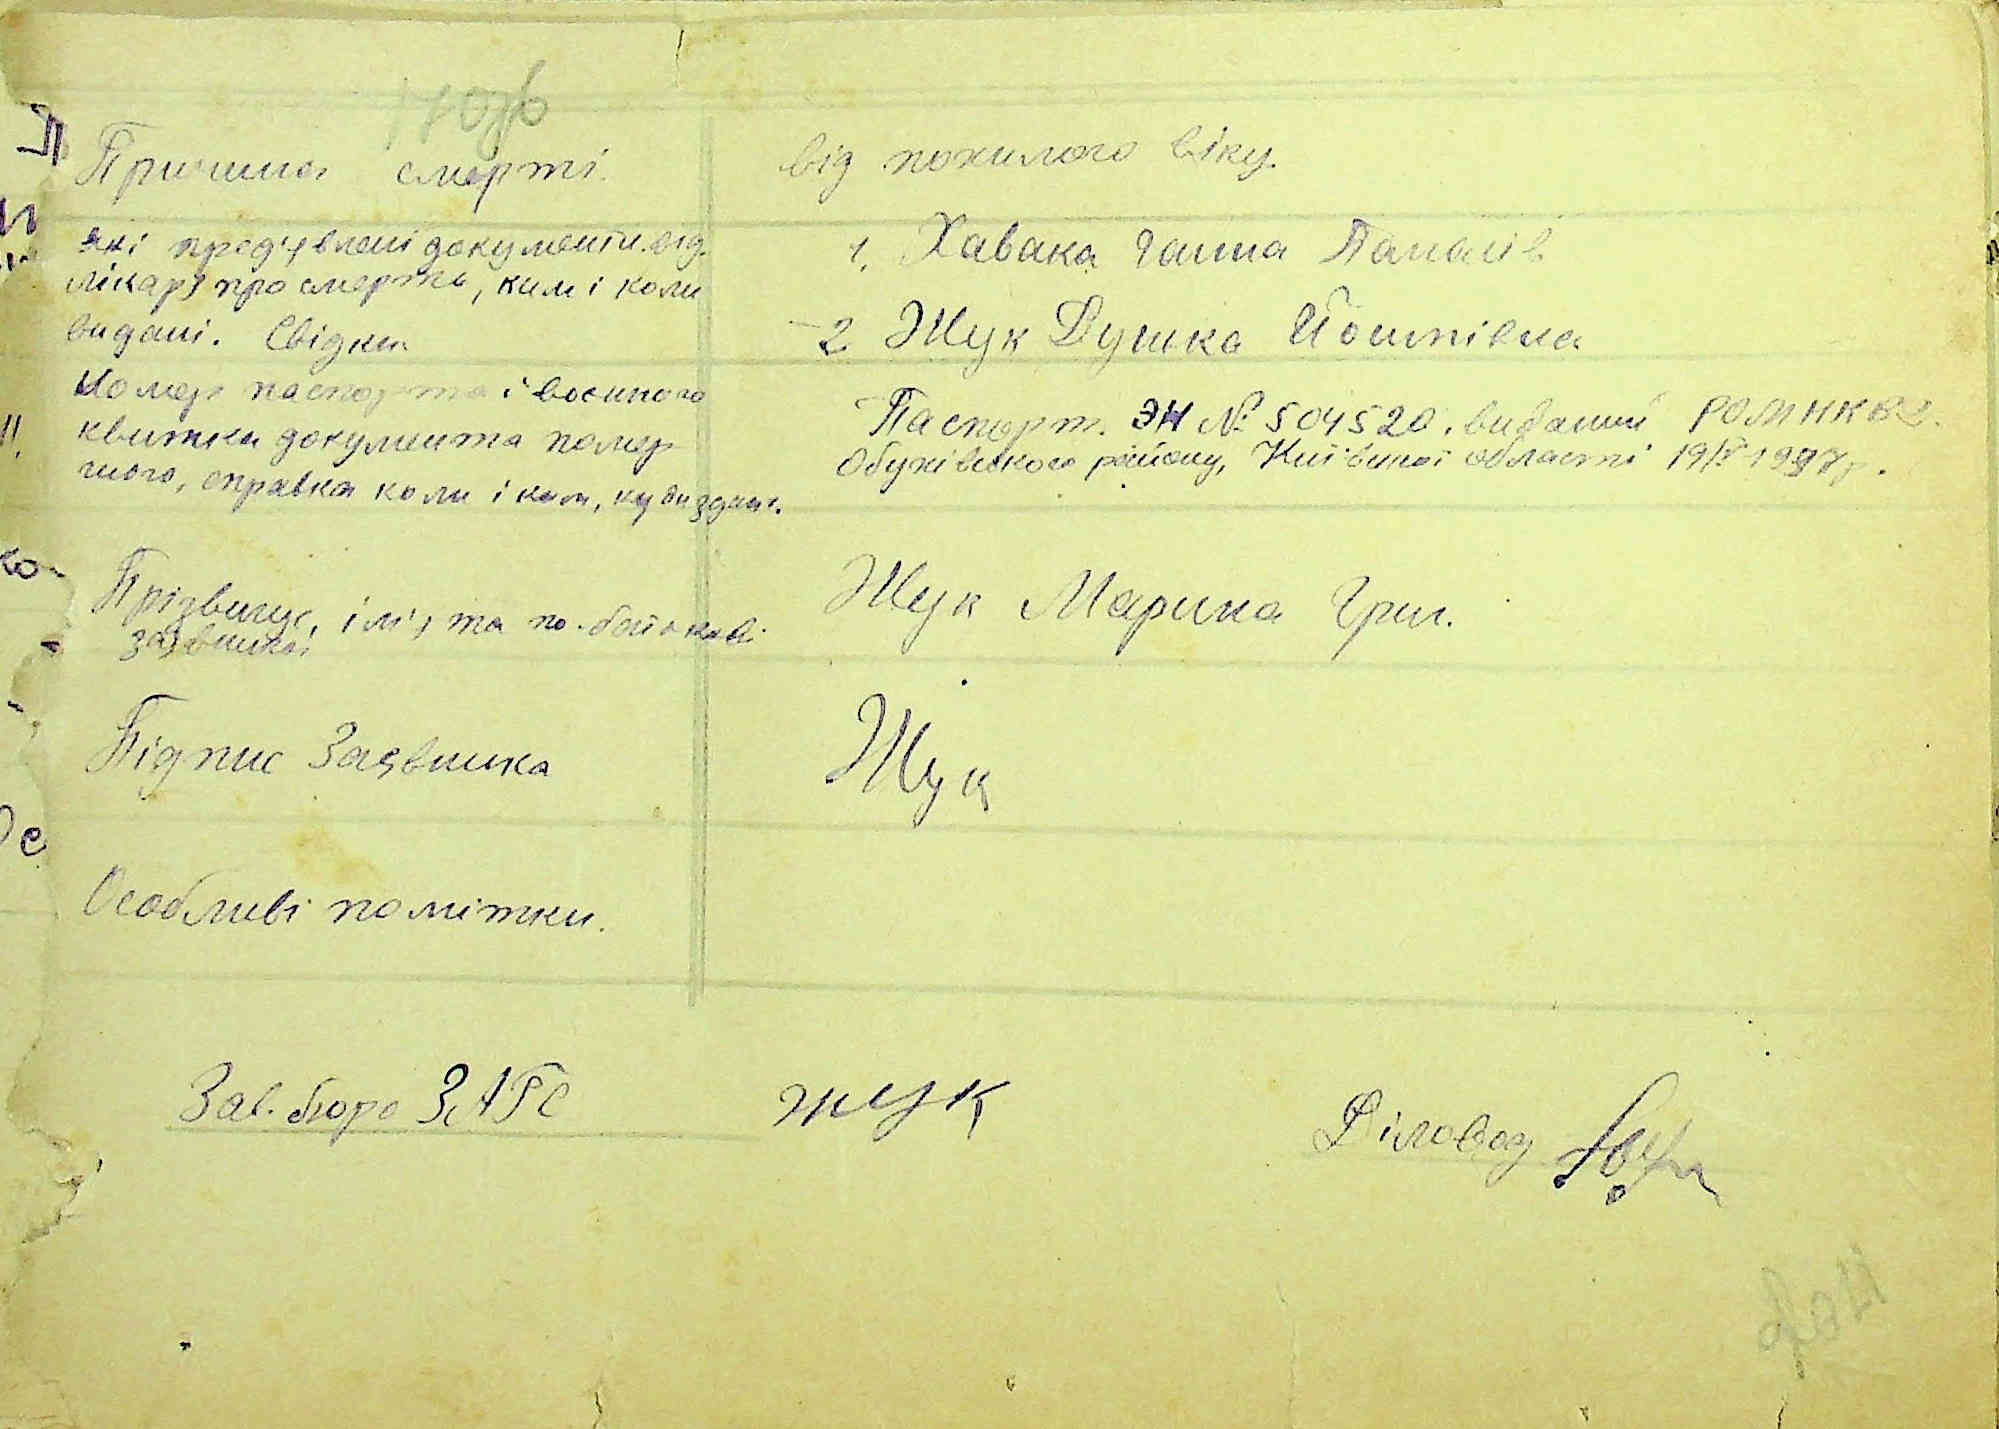 Причина смерті.
від похилого віку.
які пред'явлені документи від.
лікаря про смерть, ким і коли
видані. Свідки
1. Хавака Ганна Панасів
2 Жук Душка Йосипівна
Номер паспорта і воєнного
квитка документа помер
шого, справка коли і ким, куди здані.
Паспорт. ЭН № 504520, виданий РОМ НКВС.
Обухівського району, Київської області 19/V-1937р.
Прізвище, ім'я та по-батькові
заявника
Жук Марина Григ.
Підпис Заявника
Жук
Особливі помітки.
Зав. бюро ЗАГС
Жук
Діловод